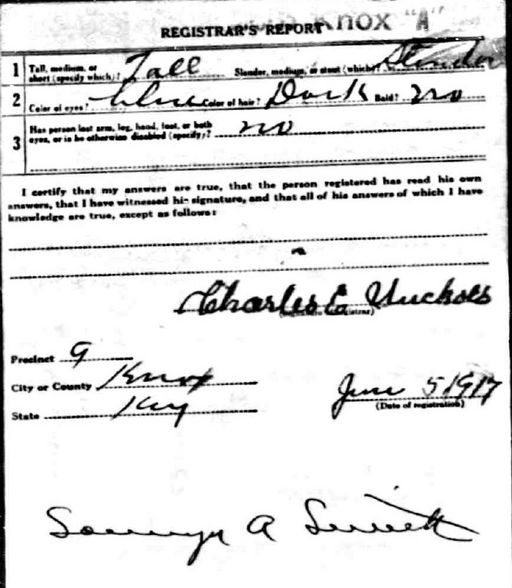 Knox "A"
REGISTRAR'S REPORT
1 Tall, medium, or short (specify which)? Tall Slender, medium, or stout (which)? Slender
2 Color of eyes? blue Color of hair? Dark Bald? no
3 Has person lost arm, leg, hand, foot, or both eyes, or is he otherwise disabled (specify)? no
I certify that my answers are true, that the person registered has read his own
answers, that I have witnessed his signature, and that all of his answers of which I have
knowledge are true, except as follows:
Charles E Nuckols
Precinct 9
City or County Knox
State Ky
June 5 1917
(Date of registration)
A